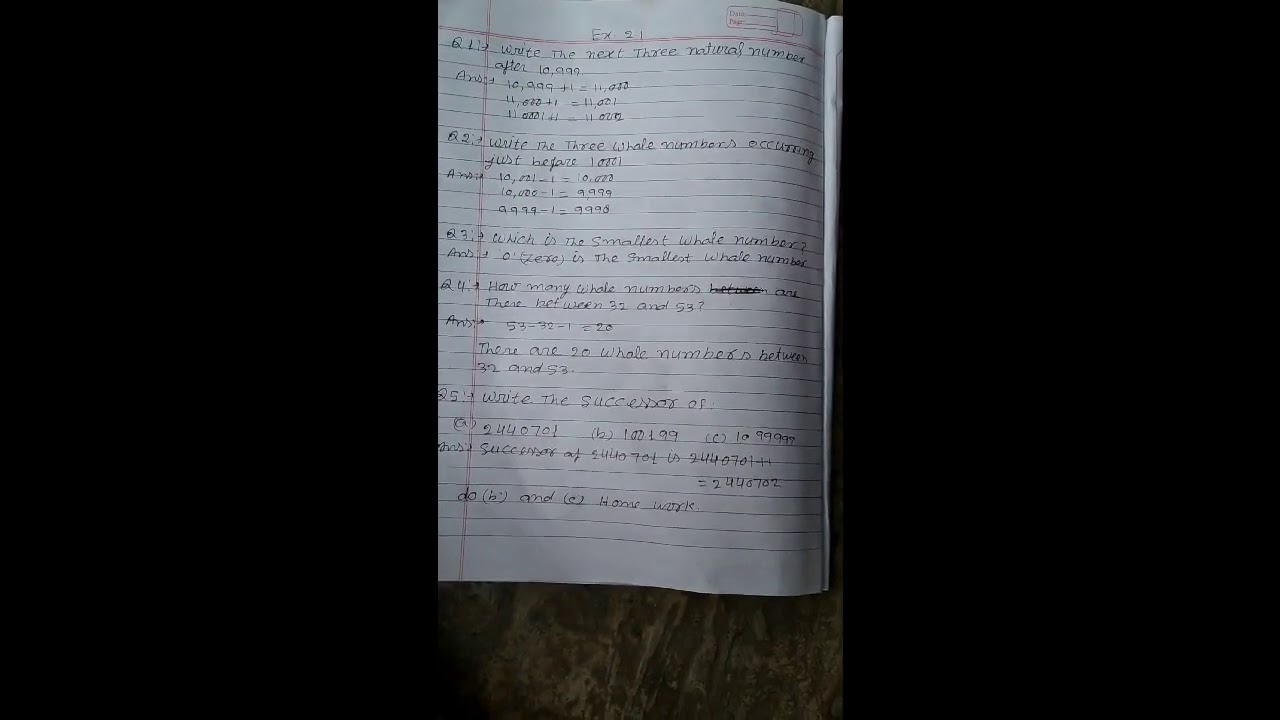 Date:
Page:
Ex. 2.1
Q1:→ Write The next Three natural number
after 10,999.
Ans:→ 10,999 +1 = 11,000
11,000+1 = 11,001
11,0001+1 = 11,002
Q2:→ Write The Three whale numbers occurring
just before 10001
Ans:→ 10,001-1 = 10,000
10,000-1 = 9,999
9999-1 = 9998
Q3:→ Which is The Smallest whale number?
Ans:→ '0' (zero) is The smallest whale number
Q4:→ How many whale numbers between are
There between 32 and 53?
Ans:→ 53-32-1 = 20
There are 20 whale numbers between
32 and 53.
Q5:→ Write The Successor of:
(a) 2440701 (b) 100199 (c) 1099999
Ans:→ Successor of 2440701 is 2440701+1
= 2440702
do (b) and (c) Home work.